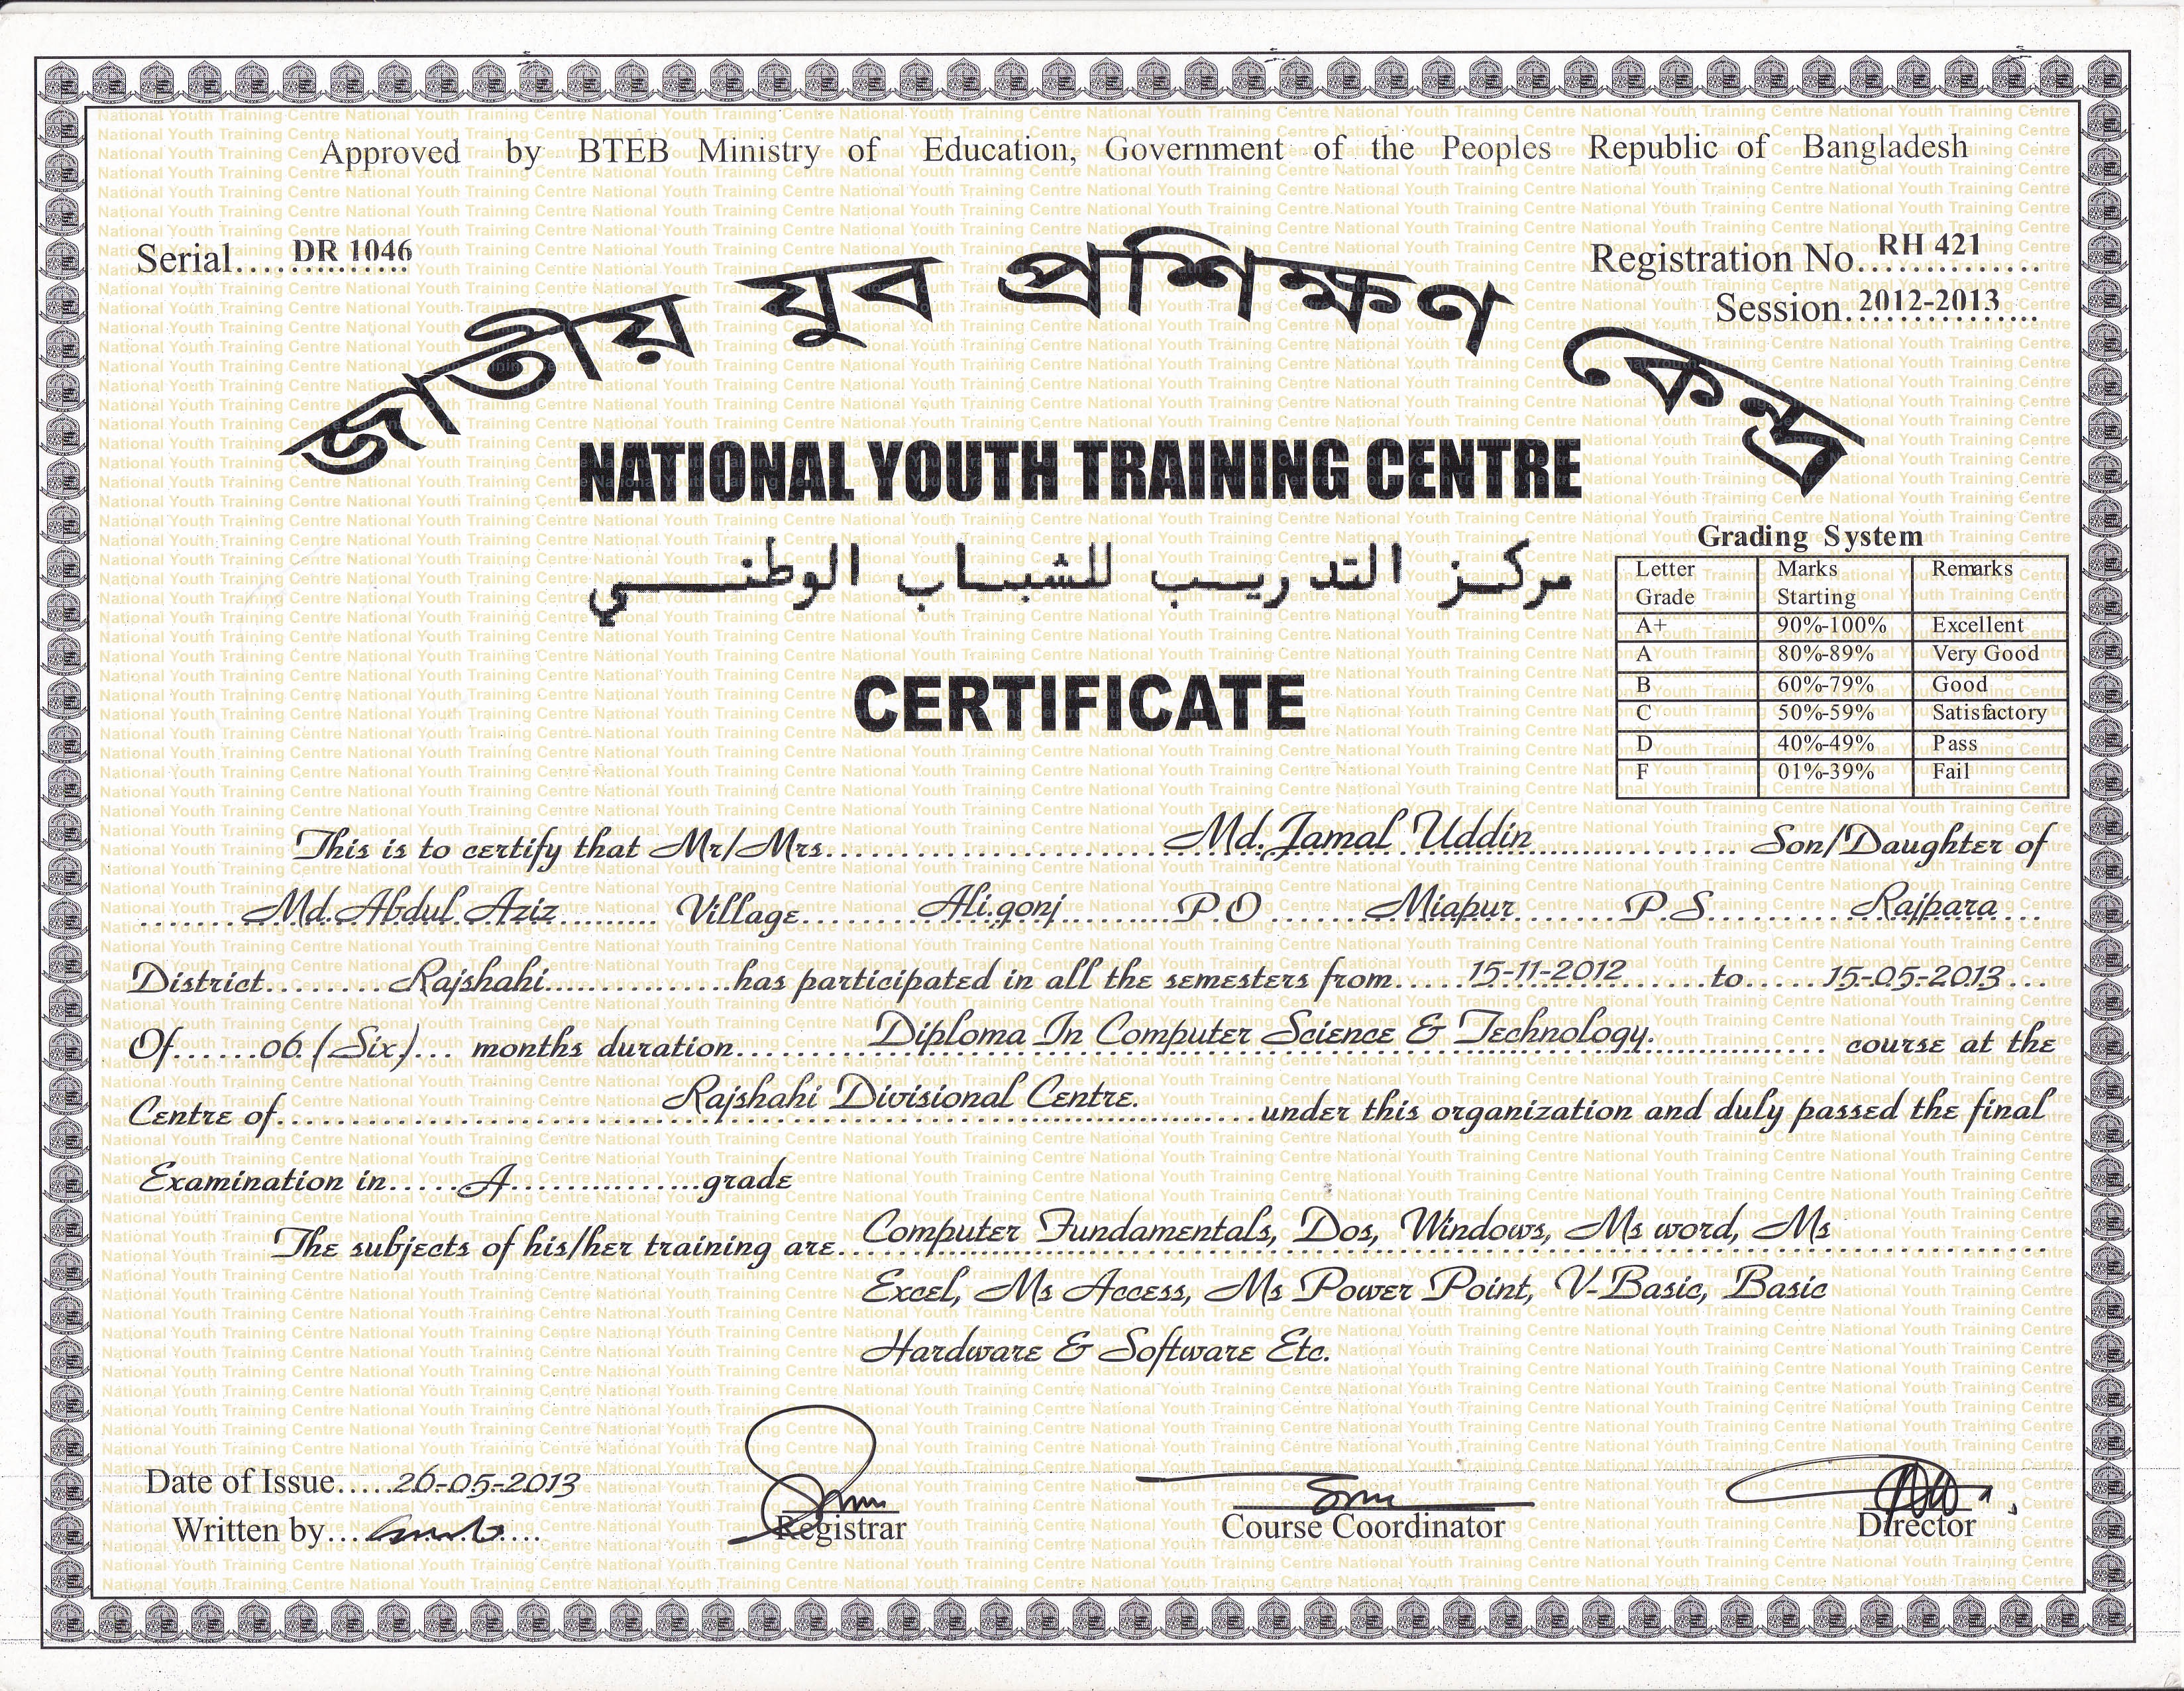 Approved by BTEB Ministry of Education, Government of the Peoples Republic of Bangladesh
Serial.... DR 1046
Registration No. RH 421
Session. 2012-2013
জাতীয় যুব প্রশিক্ষণ কেন্দ্র
NATIONAL YOUTH TRAINING CENTRE
مركز التدريب للشباب الوطني
Grading System
Letter Grade Marks Starting Remarks
A+ 90%-100% Excellent
A 80%-89% Very Good
B 60%-79% Good
C 50%-59% Satisfactory
D 40%-49% Pass
F 01%-39% Fail
CERTIFICATE
This is to certify that Mr/Mrs. Md. Jamal Uddin Son/Daughter of
Md. Abdul Aziz Village Ali gonj P O Miapur P. S. Rajpara
District Rajshahi has participated in all the semesters from 15-11-2012 to 15-05-2013
Of 06 (Six) months duration Diploma In Computer Science & Technology. course at the
Centre of Rajshahi Divisional Centre. under this organization and duly passed the final
Examination in A grade
The subjects of his/her training are. Computer Fundamentals, Dos, Windows, Ms word, Ms
Excel, Ms Access, Ms Power Point, V-Basic, Basic
Hardware & Software Etc.
Date of Issue 26-05-2013
Written by
Registrar
Course Coordinator
Director